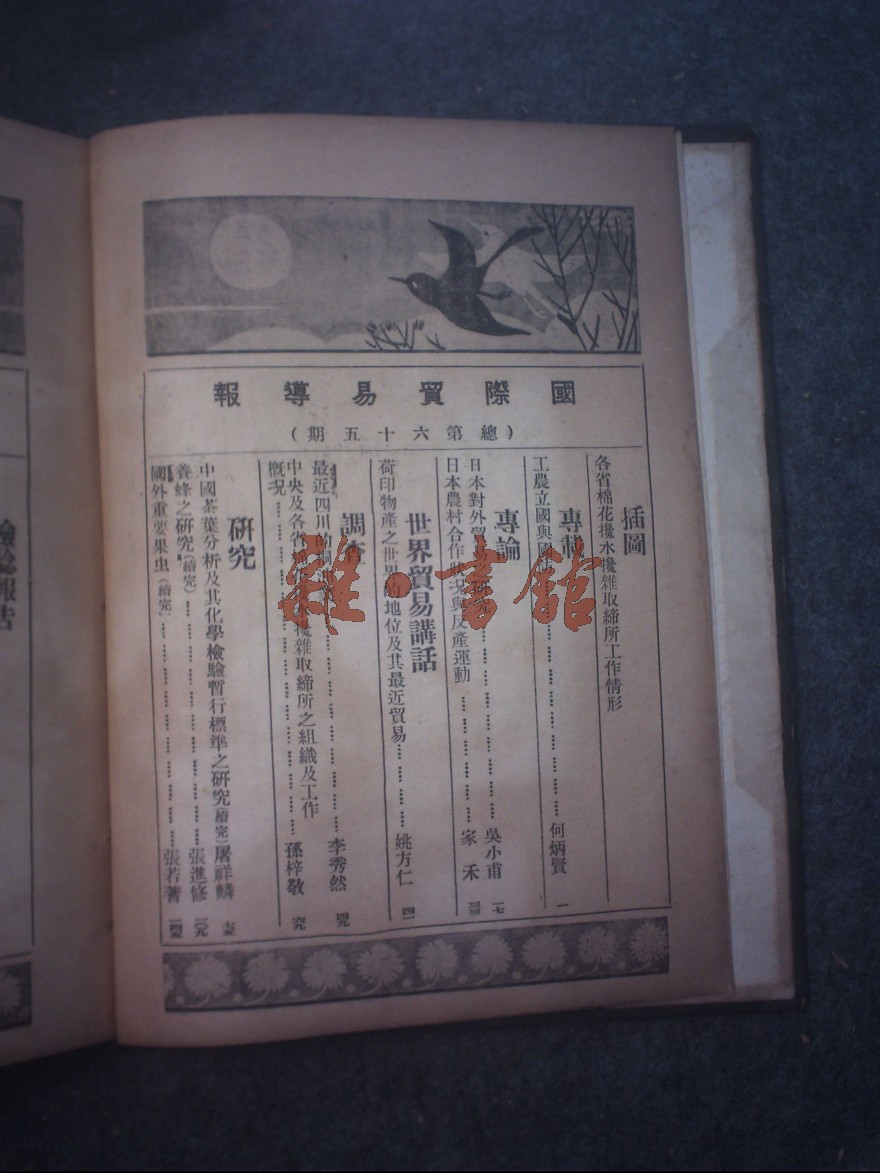 國際貿易導報
（總第六十五期）
插圖
各省棉花攙水攙雜取締所工作情形
專載
工農立國與國 何炳賢 一
專論
日本對外貿易之 吳小甫 一七
日本農村合作狀況與反產運動 家禾
世界貿易講話
荷印物產之世界的地位及其最近貿易 姚方仁
調查
最近四川的 李秀然
中央及各省 攙雜取締所之組織及工作
概況 孫梓敬
研究
中國茶葉分析及其化學檢驗暫行標準之研究（續完） 屠祥麟
養蜂之研究（續完） 張進修 一〇九
國外重要果虫（續完） 張若蓍
檢驗報告
雜·書館